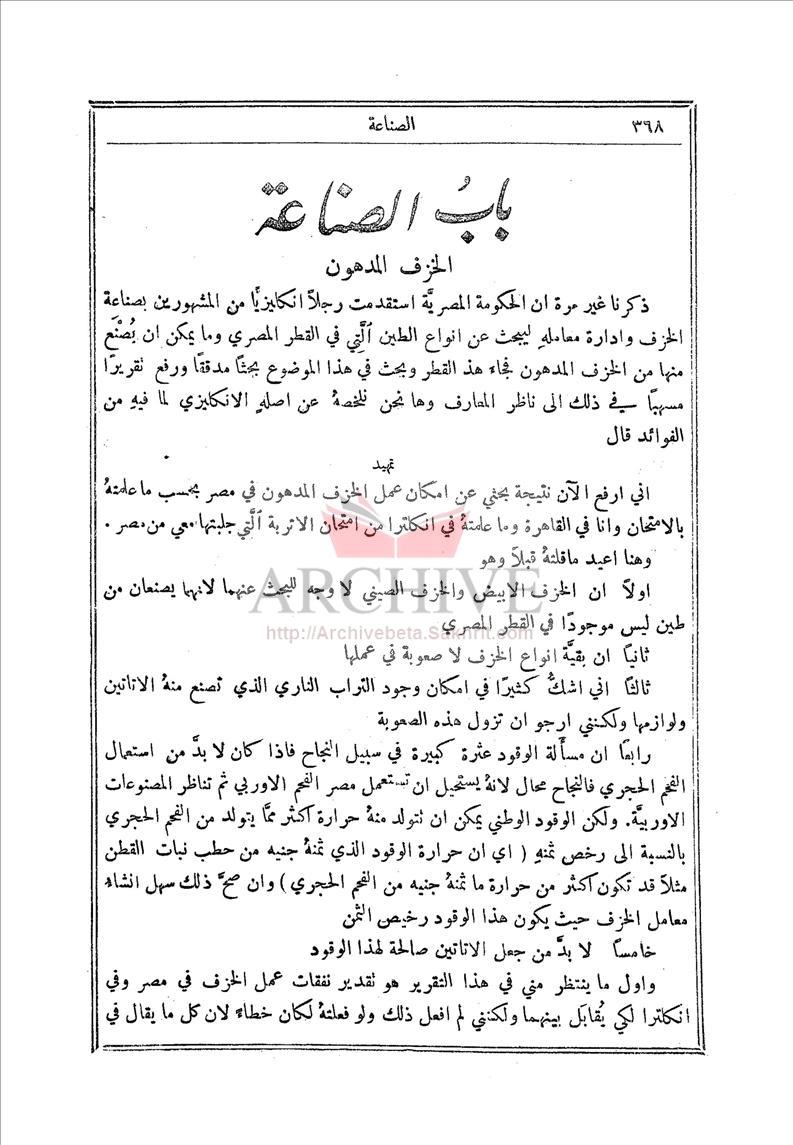 ٣٦٨
الصناعة
بابُ الصناعة
الخزف المدهون
ذكرنا غير مرة ان الحكومة المصريَّة استقدمت رجلاً انكليزيًّا من المشهورين بصناعة
الخزف وادارة معاملهِ ليبحث عن انواع الطين الَّتي في القطر المصري وما يمكن ان يُصْنَع
منها من الخزف المدهون فجاء هذ القطر وبحث في هذا الموضوع بحثًا مدققًا ورفع تقريرًا
مسهبًا في ذلك الى ناظر المعارف وها نحن نلخصهُ عن اصلهِ الانكليزي لما فيهِ من
الفوائد قال
تمهيد
اني ارفع الآن نتيجة بحثي عن امكان عمل الخزف المدهون في مصر بحسب ما علمتهُ
بالامتحان وانا في القاهرة وما علمتهُ في انكلترا من امتحان الاتربة الَّتي جلبتها معي من مصر .
وهنا اعيد ماقلتهُ قبلاً وهو
اولاً ان الخزف الابيض والخزف الصيني لا وجه للبحث عنهما لانهما يصنعان من
طين ليس موجودًا في القطر المصري
ثانيًا ان بقيَّة انواع الخزف لا صعوبة في عملها
ثالثًا اني اشكُّ كثيرًا في امكان وجود التراب الناري الذي تصنع منهُ الاتاتين
ولوازمها ولكنني ارجو ان تزول هذه الصعوبة
رابعًا ان مسأَلة الوقود عثرة كبيرة في سبيل النجاح فاذا كان لا بدَّ من استعمال
الفحم الحجري فالنجاح محال لانهُ يستحيل ان تستعمل مصر الفحم الاوربي ثم تناظر المصنوعات
الاوربيَّة. ولكن الوقود الوطني يمكن ان تتولد منهُ حرارة اكثر ممَّا يتولد من الفحم الحجري
بالنسبة الى رخص ثمنهِ ( اي ان حرارة الوقود الذي ثمنهُ جنيه من حطب نبات القطن
مثلاً قد تكون اكثر من حرارة ما ثمنهُ جنيه من الفحم الحجري ) وان صحَّ ذلك سهل انشاء
معامل الخزف حيث يكون هذا الوقود رخيص الثمن
خامسًا لا بدَّ من جعل الاتاتين صالحة لهذا الوقود
واول ما ينتظر مني في هذا التقرير هو تقدير نفقات عمل الخزف في مصر وفي
انكلترا لكي يُقابَل بينهما ولكنني لم افعل ذلك ولو فعلتهُ لكان خطاءً لان كل ما يقال في
ARCHIVE
http://Archivebeta.Sakhrit.com